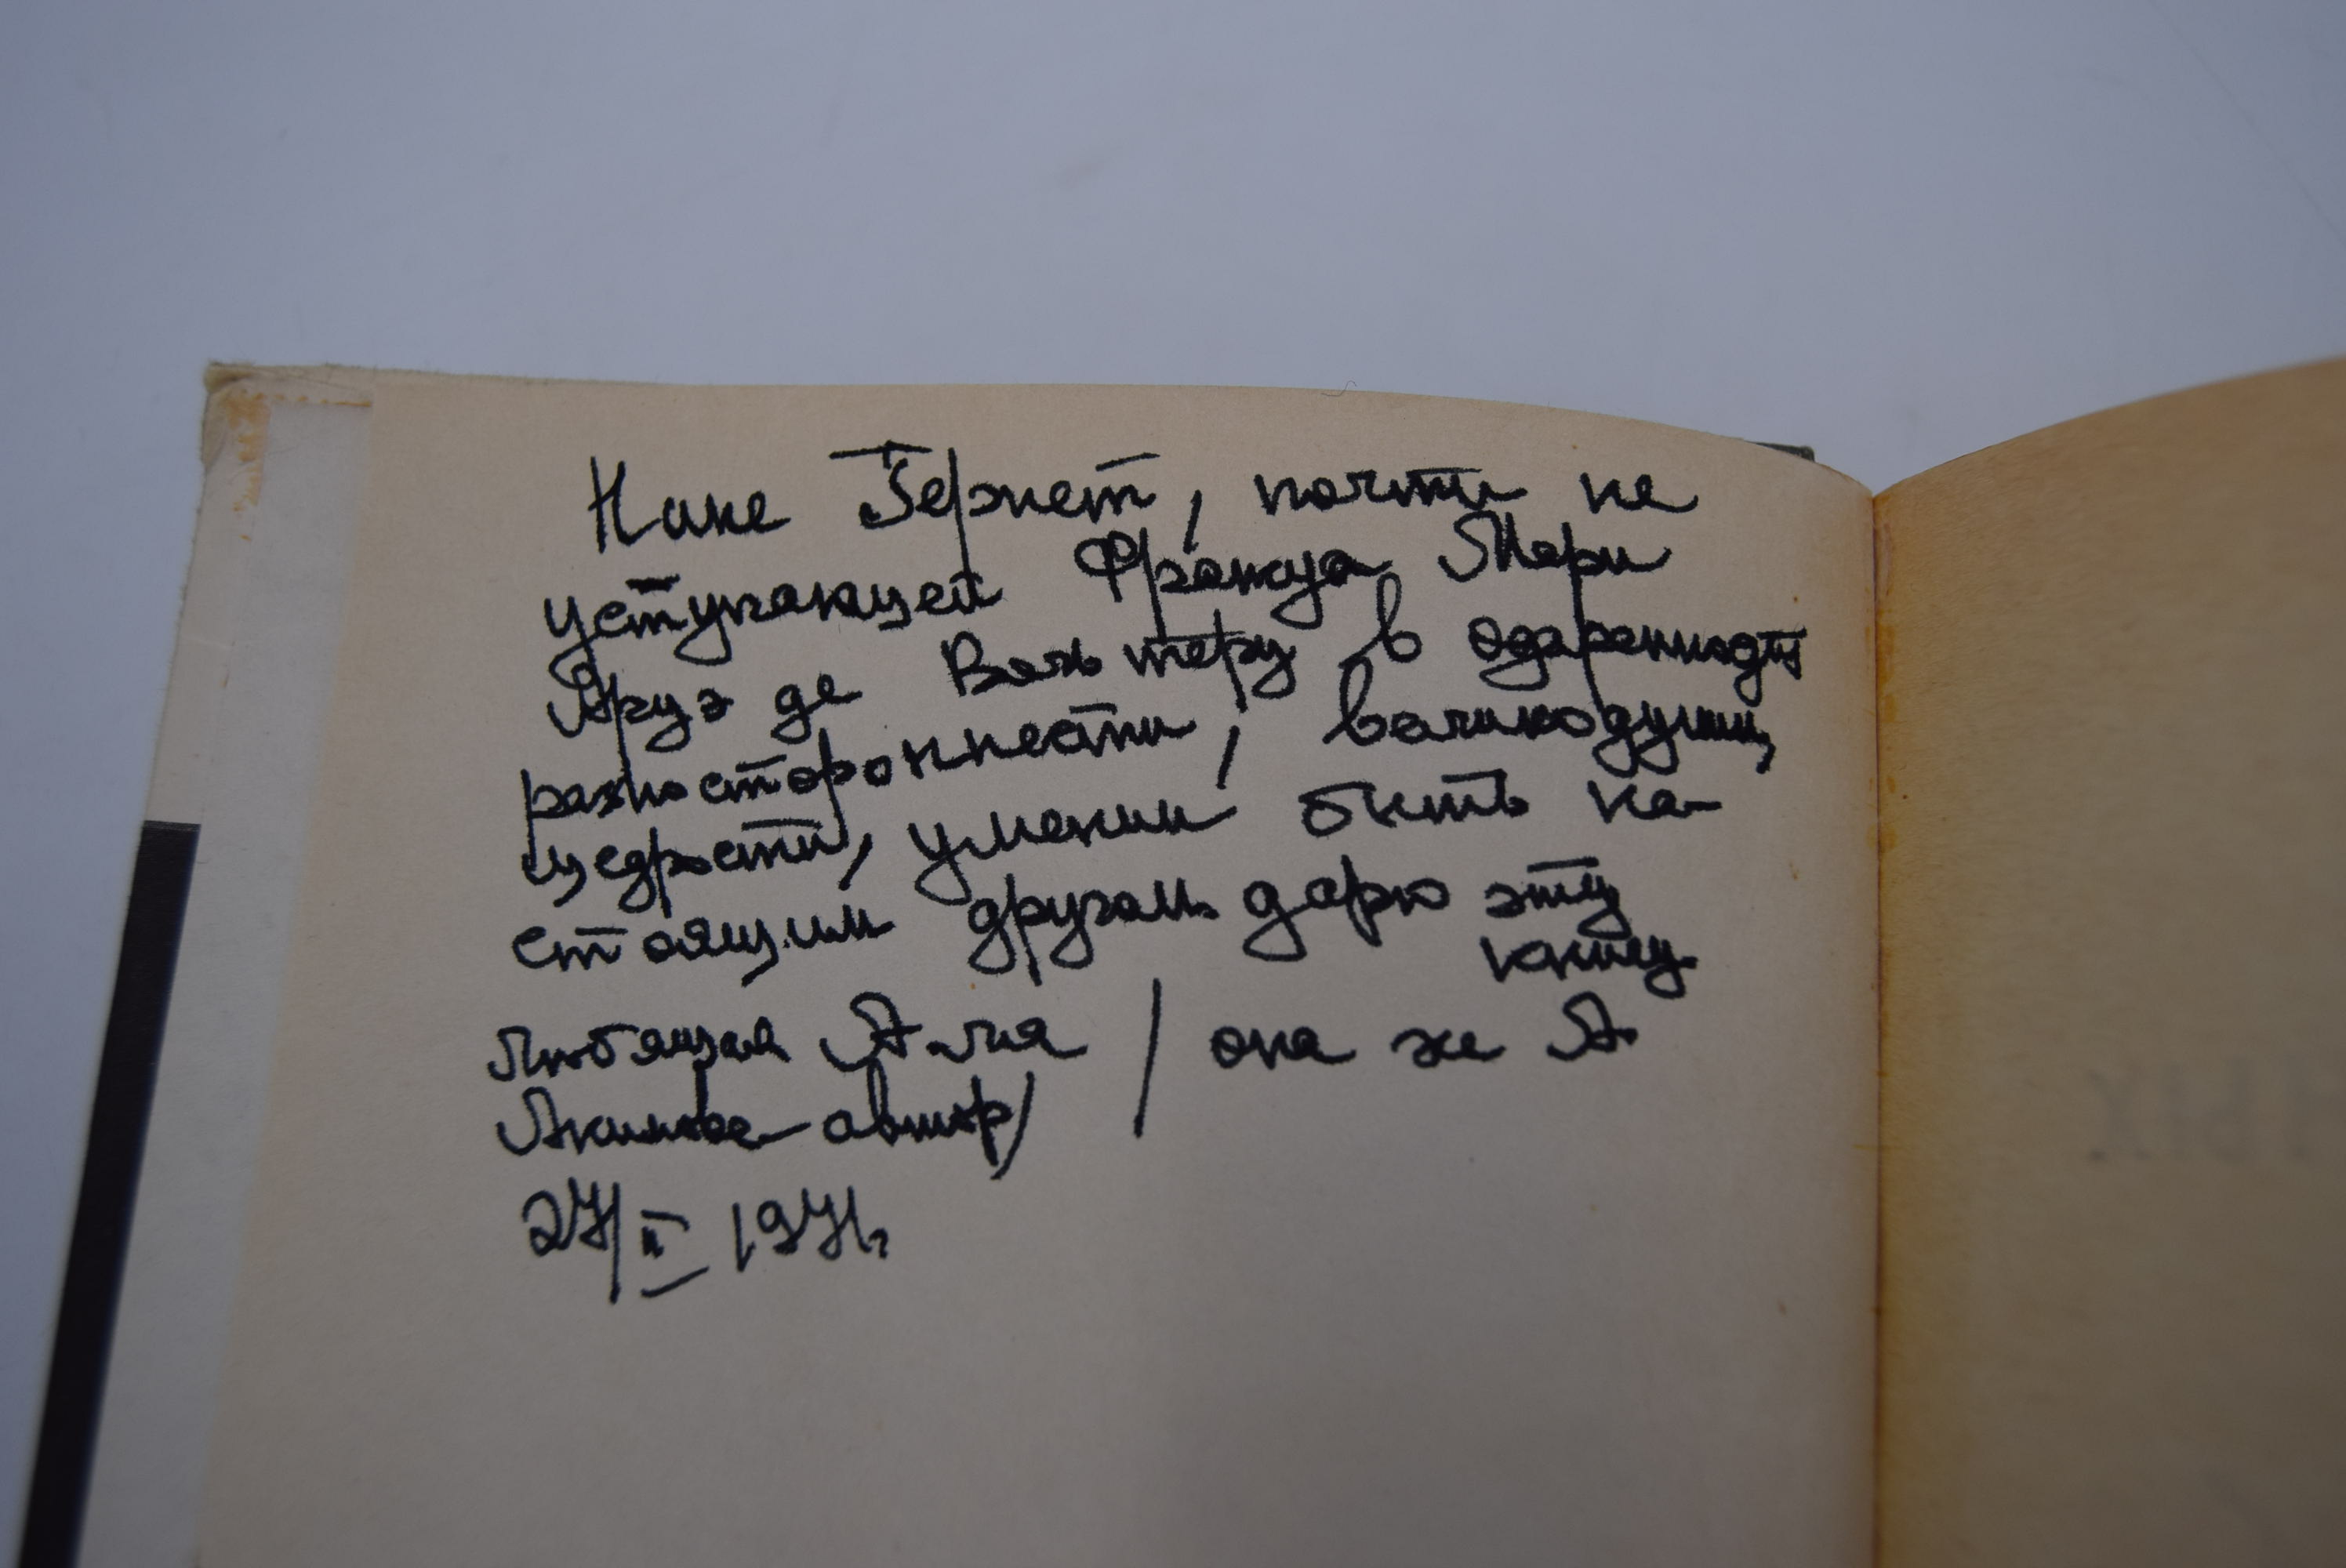 Нине Гернет, почти не
уступающей Франсуа Мари
Аруэ де Вольтеру в одаренности
разносторонности, великодушии,
щедрости, умении быть на-
стоящим другом дарю эту
книгу
Любящая Аля / она же А.
Акимова – автор/
27/II 1971.